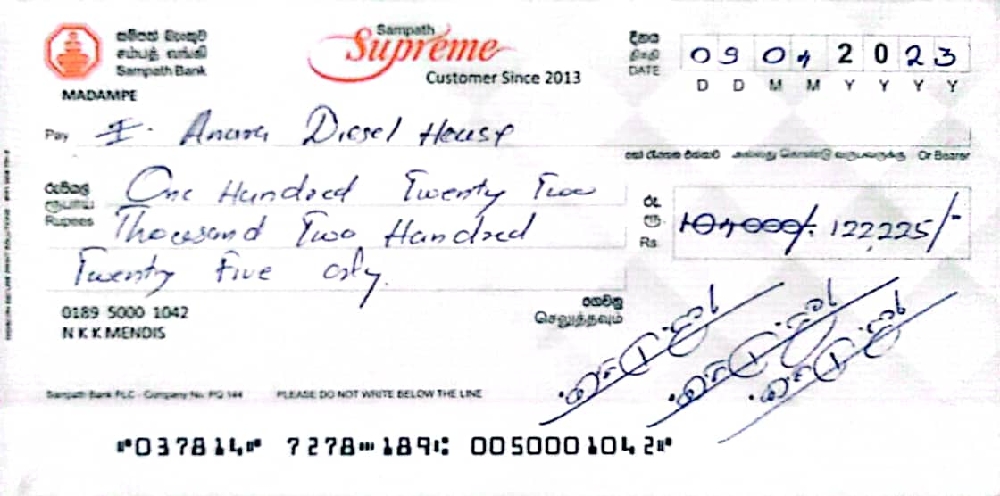 සම්පත් බැංකුව
சம்பத் வங்கி
Sampath Bank
MADAMPE
Sampath
Supreme
Customer Since 2013
දිනය
திகதி
DATE
09 04 2023
D D M M Y Y Y Y
Pay Anura Diesel House
හෝ රැගෙන එන්නාට அல்லது கொண்டு வருபவருக்கு Or Bearer
රුපියල්
ரூபாய்
Rupees
One Hundred Twenty Two
Thousand Two Hundred
Twenty Five only.
රු.
ரூ.
Rs.
104000/- 122,225/-
0189 5000 1042
N K K MENDIS
ගෙවනු
செலுத்தவும்
Sampath Bank PLC - Company No. PQ 144 PLEASE DO NOT WRITE BELOW THE LINE
⑈037814⑈ 7278⑉189⑆ 0050001042⑈